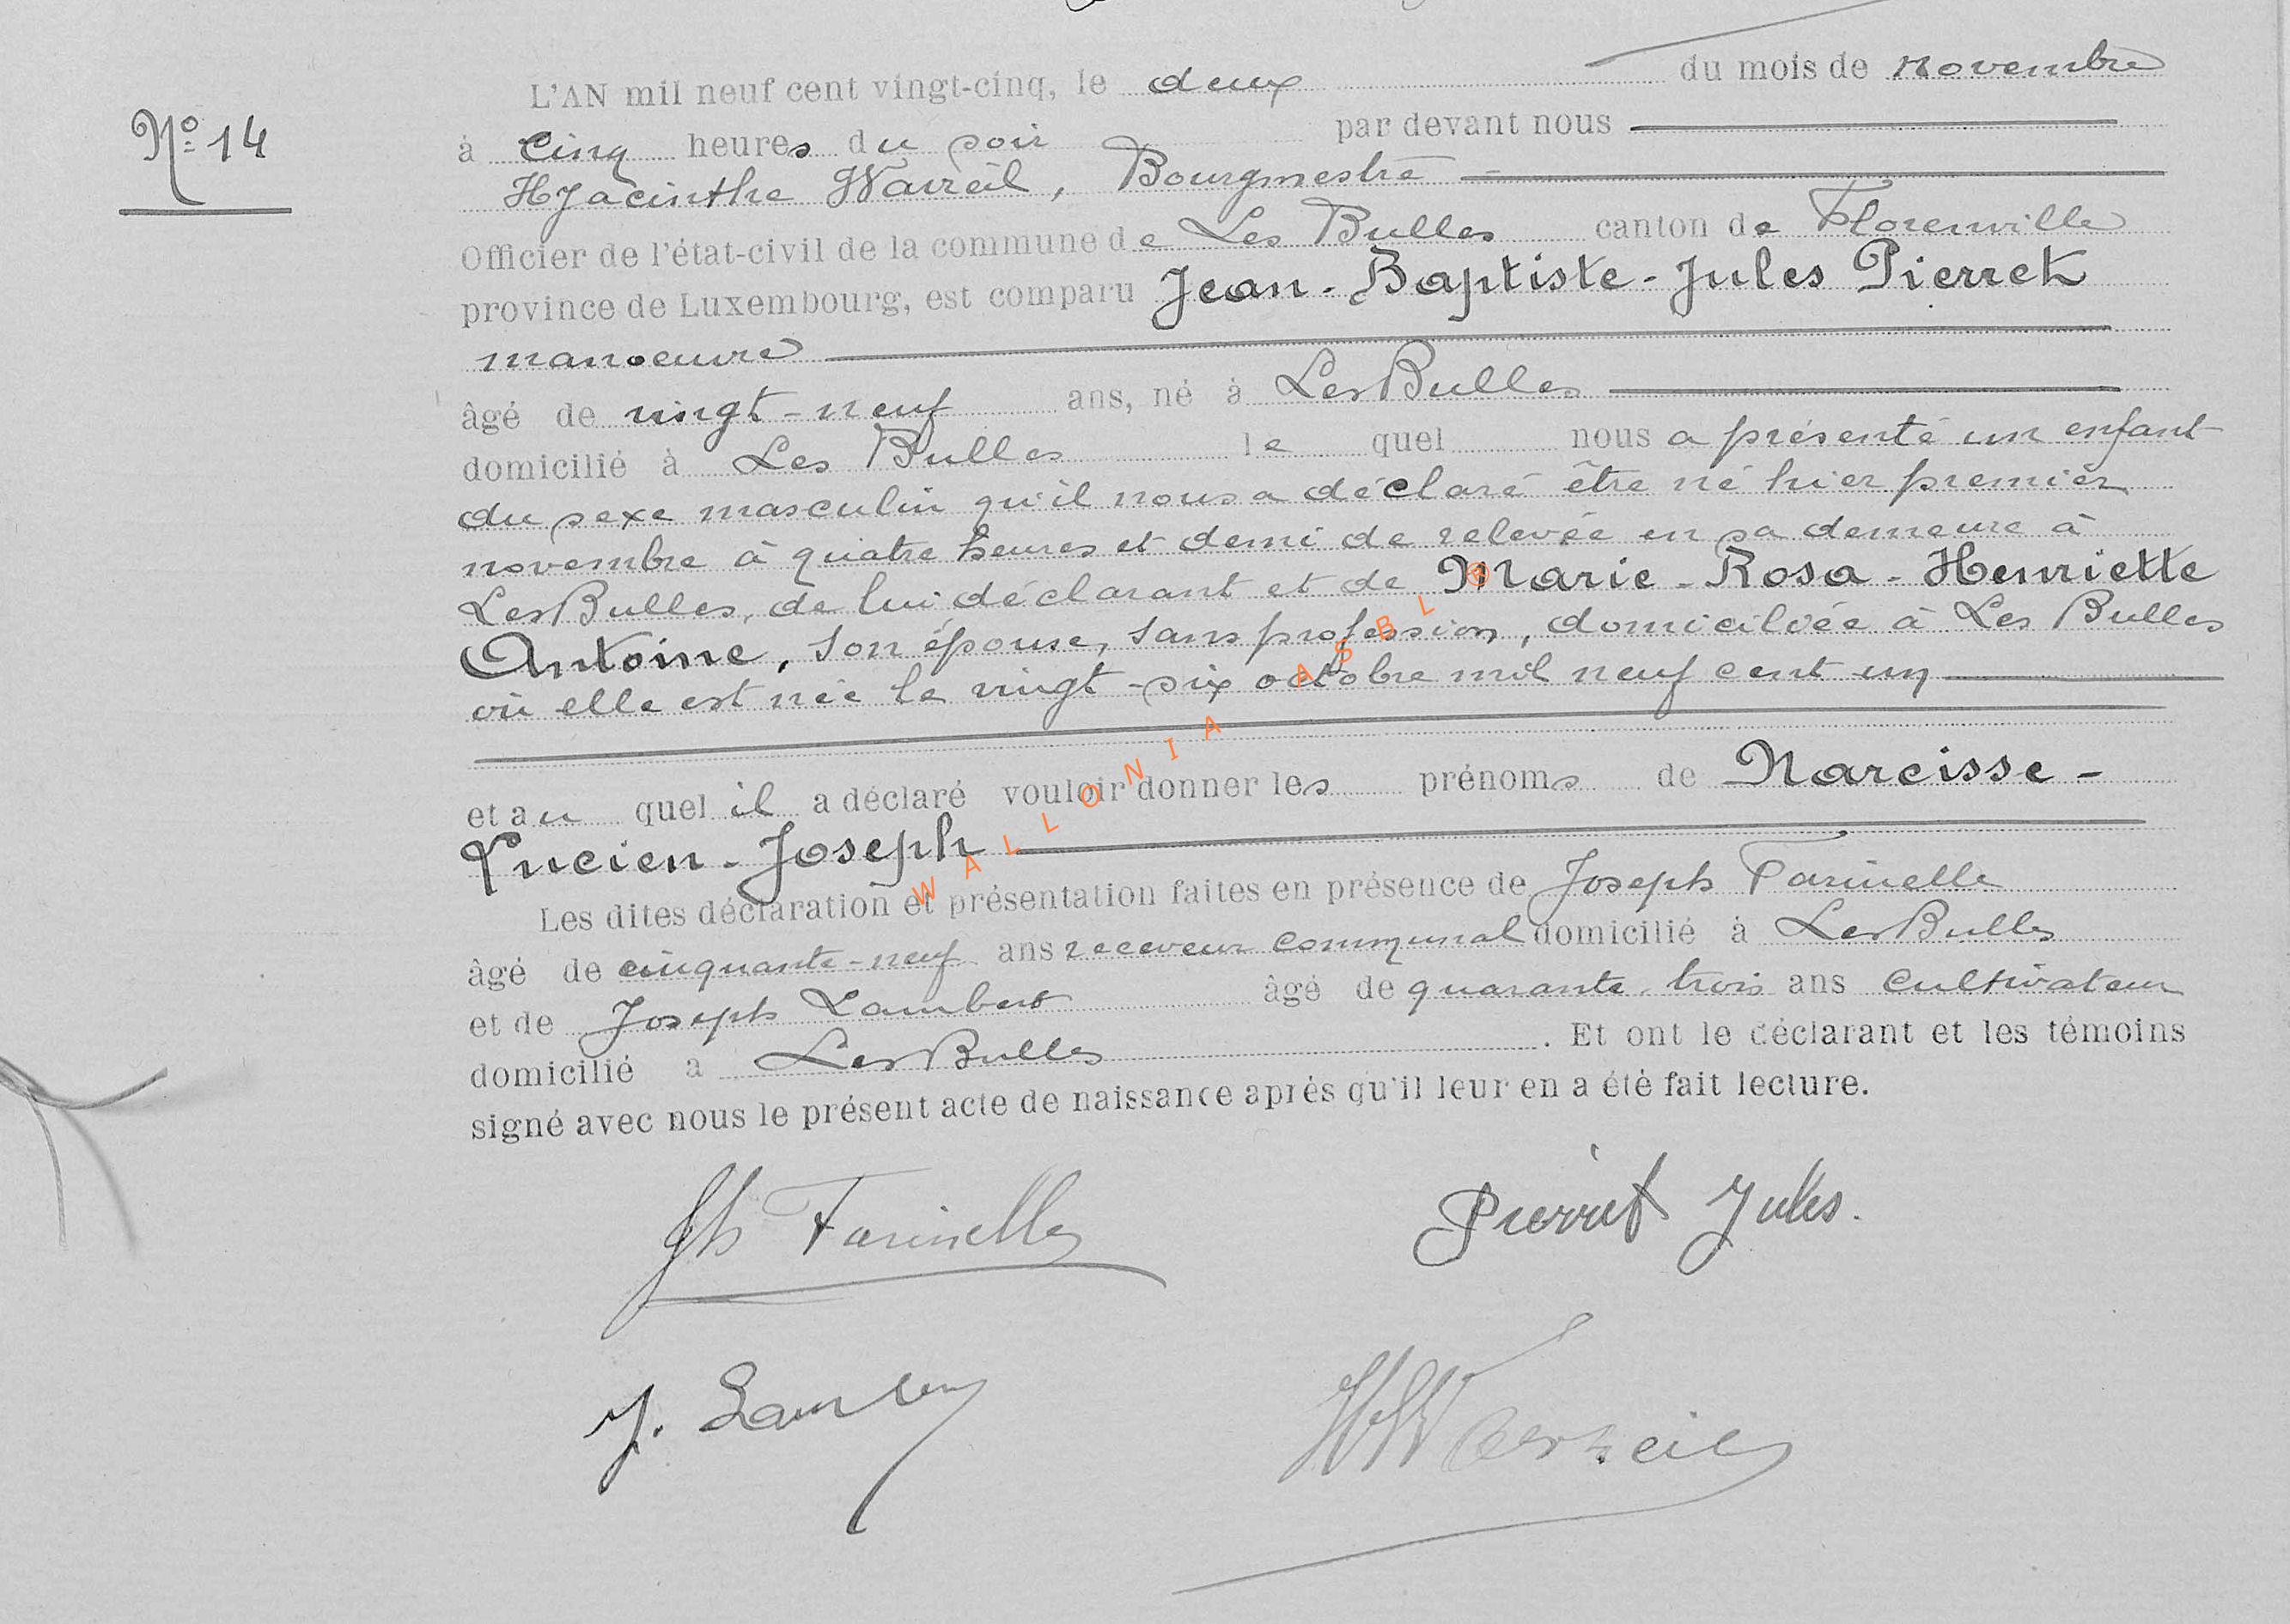 L'AN mil neuf cent vingt-cinq, le deux du mois de novembre
N° 14
à cinq heures du soir par devant nous
Hyacinthe Warzéé, Bourgmestre
Officier de l'état-civil de la commune de Les Bulles canton de Florenville
province de Luxembourg, est comparu Jean-Baptiste-Jules Pierret
manoeuvre
âgé de vingt-neuf ans, né à Les Bulles
domicilié à Les Bulles le quel nous a présenté un enfant
du sexe masculin qu'il nous a déclaré être né hier premier
novembre à quatre heures et demi de relevée en sa demeure à
Les Bulles, de lui déclarant et de Marie-Rosa-Henriette
Antoine, son épouse, sans profession, domiciliée à Les Bulles
où elle est née le vingt-six octobre mil neuf cent un
et au quel il a déclaré vouloir donner les prénoms de Narcisse-
Lucien-Joseph
Les dites déclaration et présentation faites en présence de Joseph Farinelle
âgé de cinquante-neuf ans receveur communal domicilié à Les Bulles
et de Joseph Lambert âgé de quarante-trois ans cultivateur
domicilié a Les Bulles. Et ont le déclarant et les témoins
signé avec nous le présent acte de naissance après qu'il leur en a été fait lecture.
Jh Farinelle Pierret Jules.
J. Lambert
WALLONIA ASBL ®